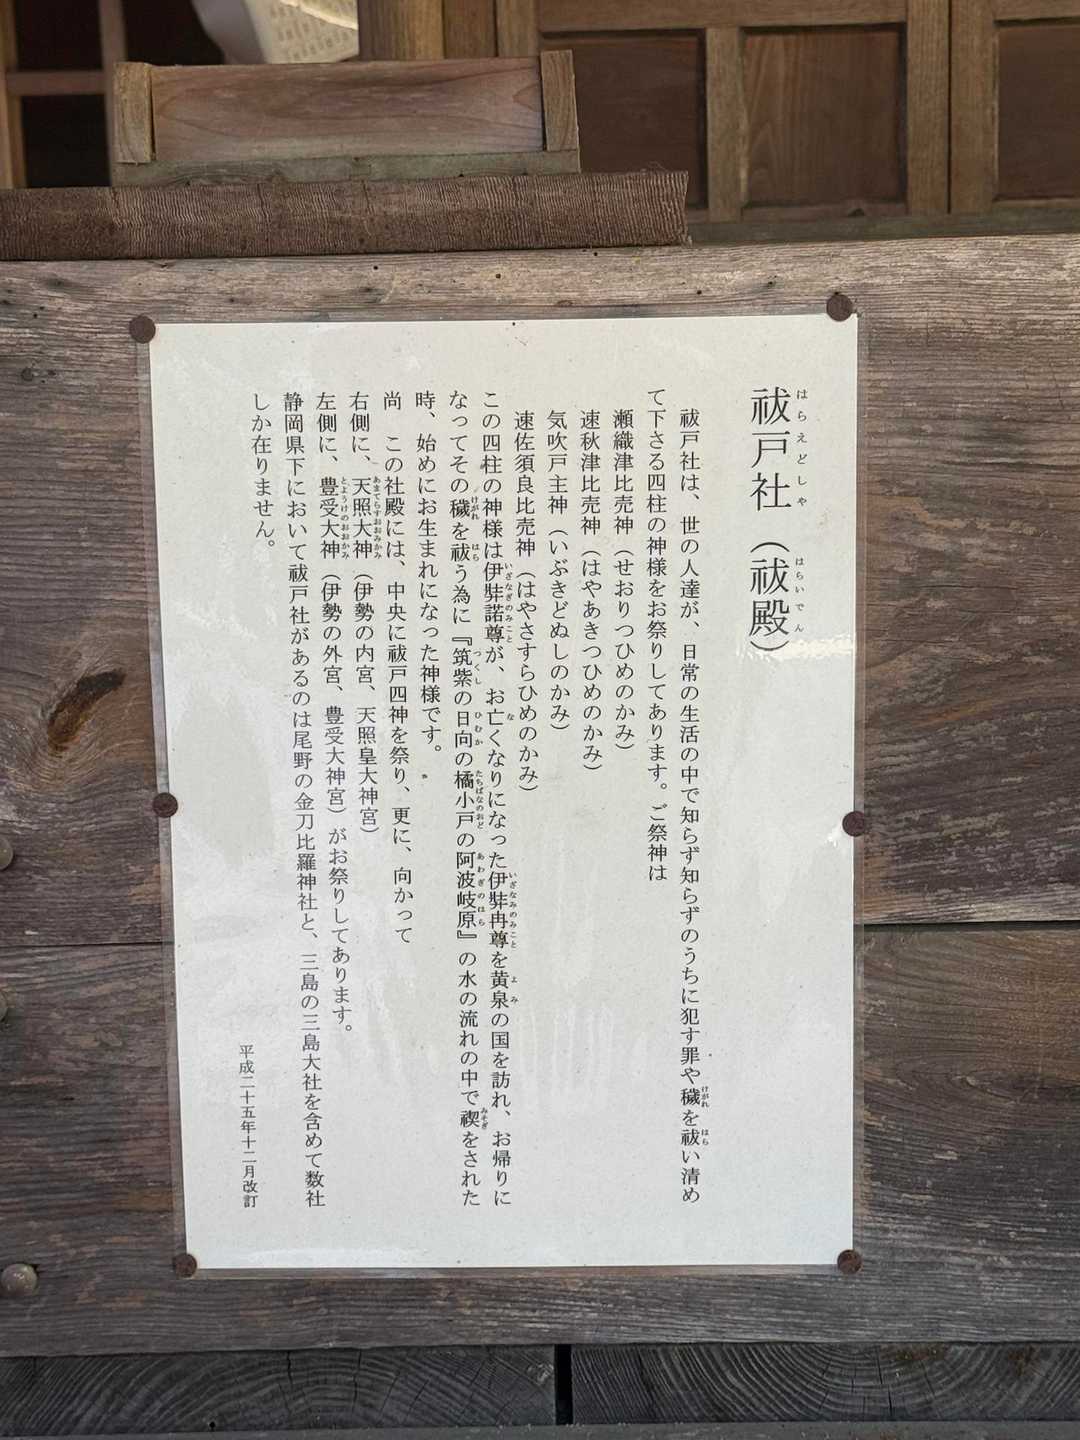 祓戸社（祓殿）
はらえどしゃ はらいでん
祓戸社は、世の人達が、日常の生活の中で知らず知らずのうちに犯す罪や穢を祓い清め
けがれ はら
て下さる四柱の神様をお祭りしてあります。ご祭神は
瀬織津比売神（せおりつひめのかみ）
速秋津比売神（はやあきつひめのかみ）
気吹戸主神（いぶきどぬしのかみ）
速佐須良比売神（はやさすらひめのかみ）
この四柱の神様は伊弉諾尊が、お亡くなりになった伊弉冉尊を黄泉の国を訪れ、お帰りに
いざなぎのみこと な いざなみのみこと よみ
なってその穢を祓う為に『筑紫の日向の橘小戸の阿波岐原』の水の流れの中で禊をされた
けがれ はら つくし ひむか たちばなのおど あわぎのはら みそぎ
時、始めにお生まれになった神様です。
尚　この社殿には、中央に祓戸四神を祭り、更に、向かって
右側に、天照大神（伊勢の内宮、天照皇大神宮）
あまてらすおおみかみ
左側に、豊受大神（伊勢の外宮、豊受大神宮）がお祭りしてあります。
とようけのおおかみ
静岡県下において祓戸社があるのは尾野の金刀比羅神社と、三島の三島大社を含めて数社
しか在りません。
平成二十五年十二月改訂